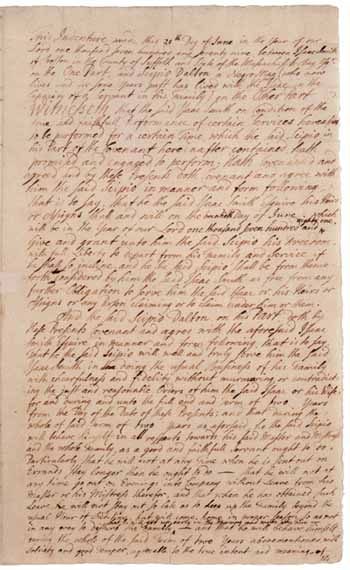 This Indenture made this 20th Day of June in the year of our
Lord one thousand seven hundred and seventy nine, between Isaac Smith
of Boston in the County of Suffolk and State of the Massachusetts Bay
on the One Part, and Scipio Dalton a Negro Man who now
lives and for some years past has lived with the said Isaac in the
Capacity of a Servant in his family on the Other Part
Witnesseth that the said Isaac Smith on Condition of the
true and faithfull Performance of certain Services hereafter
to be performed for a certain time which the said Scipio in
his Part of the Covenant hereinafter contained hath
promised and engaged to perform; Hath Covenanted and
agreed and by these Presents doth covenant and agree with
him the said Scipio in manner and form following
that is to say, that he the said Isaac Smith Esquire his Heirs
or Assigns shall and will on the Day of June which
will be in the Year of our Lord one thousand seven hundred and eighty one,
Give and grant unto him the said Scipio his Freedom,
with full Liberty to depart from his Family and Service if
he shall so incline, and he the said Scipio shall be from thence
forth considered by him the said Isaac Smith as free from any
further Obligation to serve him the said Isaac his Heirs or
Assigns or any Person claiming or to claim under him or them.
And the said Scipio Dalton on his Part doth by
these Presents Covenant and agree with the aforesaid Isaac
Smith Esquire in manner and form following, that is to say,
that he the said Scipio will well and truly serve him the said
Isaac Smith, in doing the usual Business of his Family
with cheerfulness and fidelity without murmuring or contradicting
the just and reasonable Orders of him the said Isaac or his Wife,
for and during and unto the full end and term of two Years
from the Day of the Date of these Presents; and that during the
whole of said term of two Years as aforesaid, he the said Scipio
will behave himself in all respects towards his said Master and Mistress
and the whole Family, as a good and faithfull servant ought to do.
Particularly that he will not at any time when he is sent out on
Errands stay longer than he ought to do and that he will not at
any time go out on Evenings into Company without Leave from his
Master or his Mistress therefor, and that when he has obtained such
Leave he will not stay out so late as to keep up the Family beyond the
usual Hour of but will come home in proper season so as not
in any ways to disturb the Family and that he will behave himself
during the whole of the said term of two Years abovementioned with
Sobriety and good temper, agreeable to the true intent and meaning of